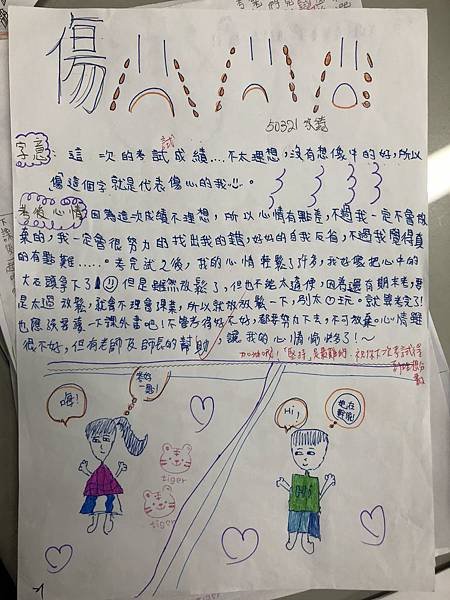 傷
50321
字意：這一次的考試成績....不太理想，沒有想像中的好，所以
傷這個字就是代表傷心的我。
考後心情 因為這次成績不理想，所以心情有點差，不過我一定不會放
棄的，我一定會很努力的找出我的錯，好好的自我反省，不過我覺得真
的有點難.....。考完試之後，我的心情輕鬆了許多，我好像把心中的
大石頭拿下了！但是雖然放鬆了，但也不能太隨便，因為還有期末考，要
是太過放鬆，就會不理會課業，所以就放鬆一下，別太玩。就算考完了！
也應該看一下課外書吧！不管考得好不好，都要努力下去，不可放棄。心情雖
很不好，但有老師及師長的幫助，讓我的心情愉快多了！～
加油喔！「堅持」是最難的
嗨！
Hi！
tiger
tiger